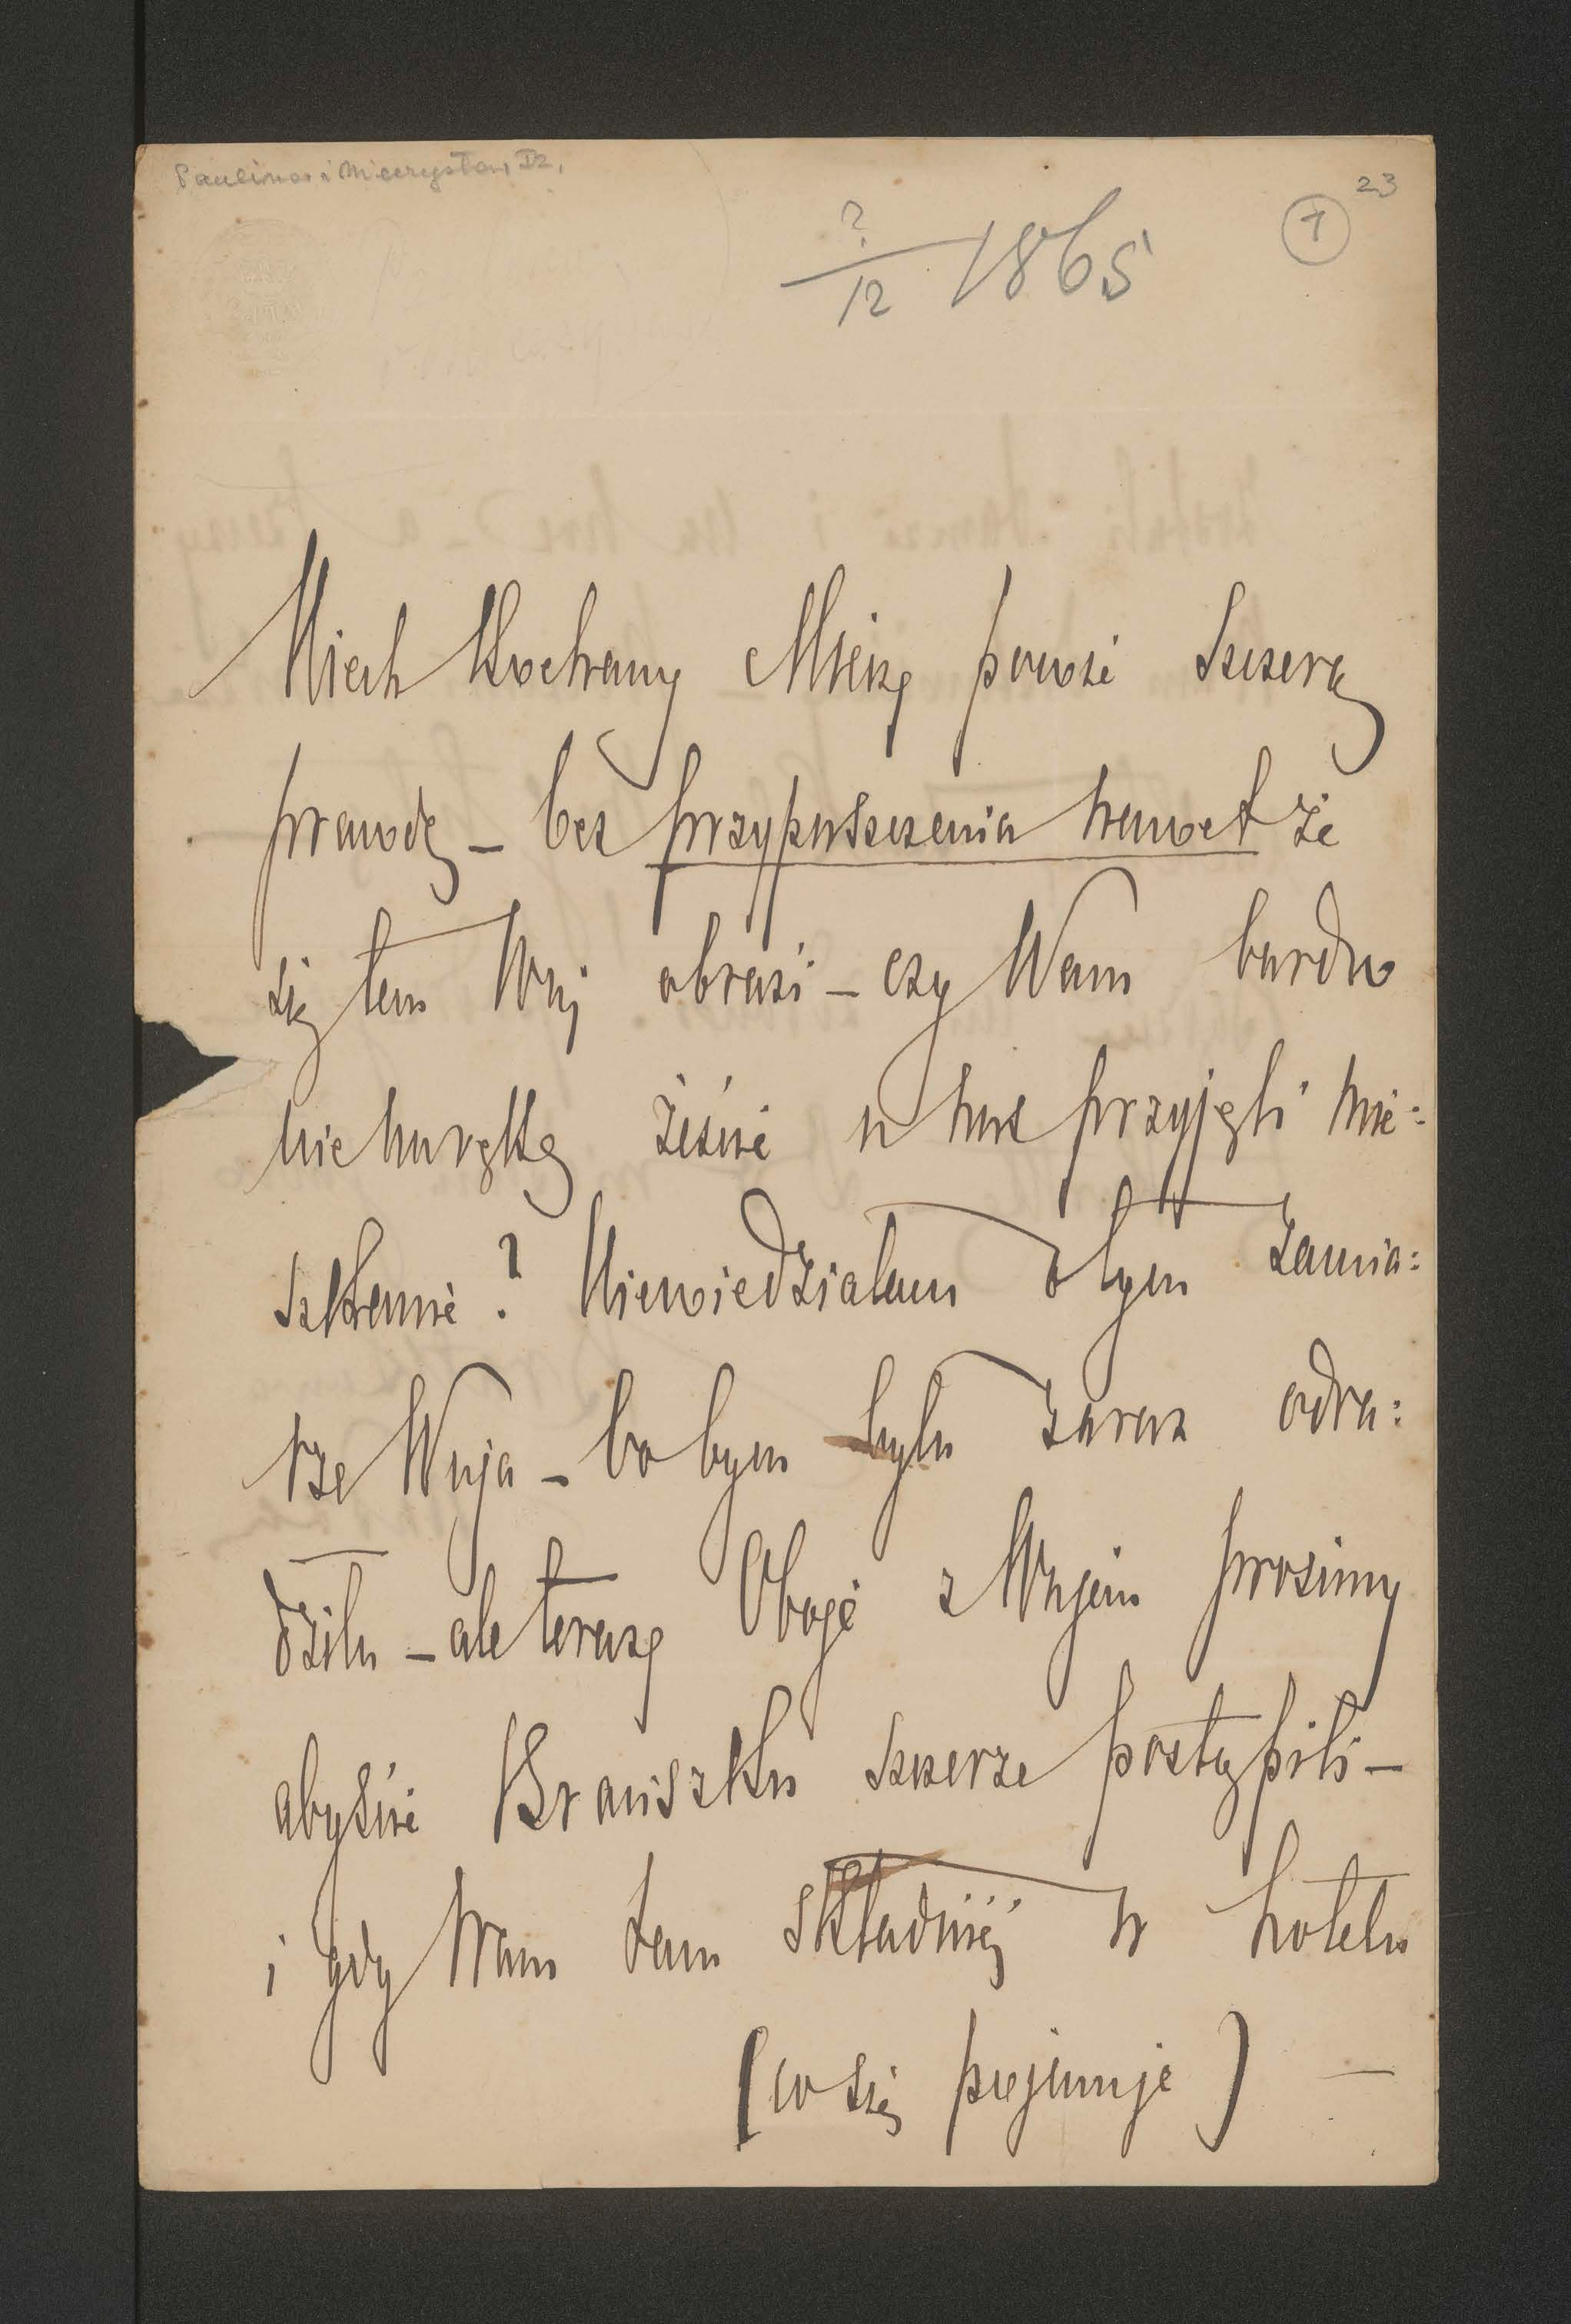 Paulina i Mieczysław Dz.
23
1
?/12 1865
Niech Kochany Mieczy powie szczerą
prawdę – bez przypuszczenia nawet że
się tem Wuj obrazi – czy Wam bardzo
nie na rękę żeście u nas przyjęli mie=
szkanie? Niewiedziałam o tym zamia=
rze Wuja – bo bym była zaraz odra=
dziła – ale teraz Oboje z Wujem prosimy
abyście szczerze postąpili –
i gdy Wam tam składniej w hotelu
(co się pojmuje) –